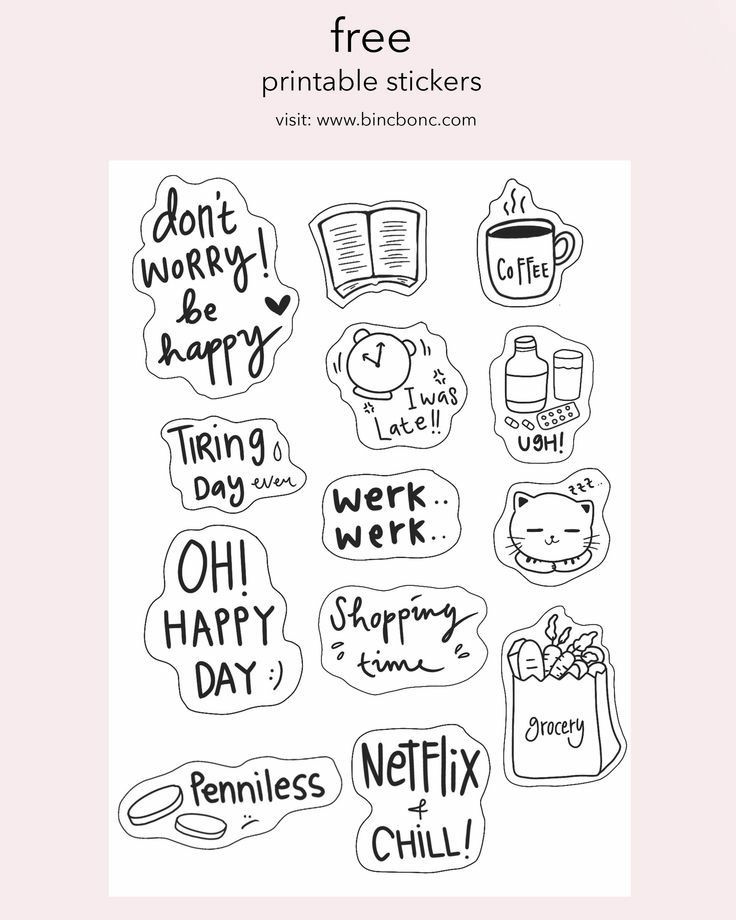 free
printable stickers
visit: www.bincbonc.com
don't
WORRY!
be
happy
COFFEE
I was
Late!!
UGH!
TIRING
Day ever
werk..
werk..
zzz..
OH!
HAPPY
DAY :)
Shopping
time
grocery
Penniless
NETFLIX
&
CHILL!